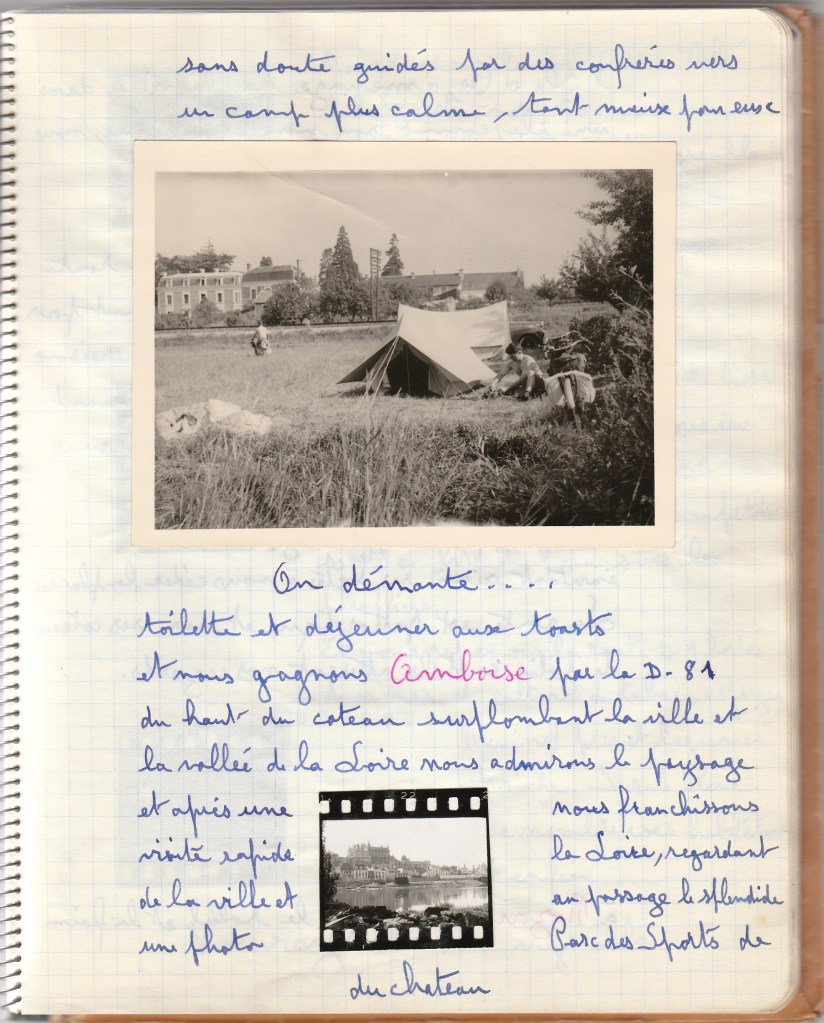 sans doute guidés par des confrères vers
un camp plus calme, tant mieux pour eux
On démonte....
toilette et déjeuner aux toasts
et nous gagnons Amboise par la D-81
du haut du coteau surplombant la ville et
la vallée de la Loire nous admirons le paysage
et après une
visite rapide
de la ville et
une photo
du chateau
nous franchissons
la Loire, regardant
au passage le splendide
Parc des Sports de
22